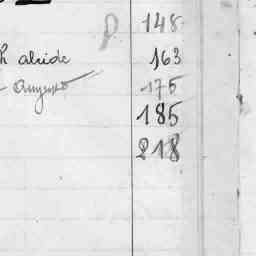 P 148
h alcide 163
Auguste 175
185
218